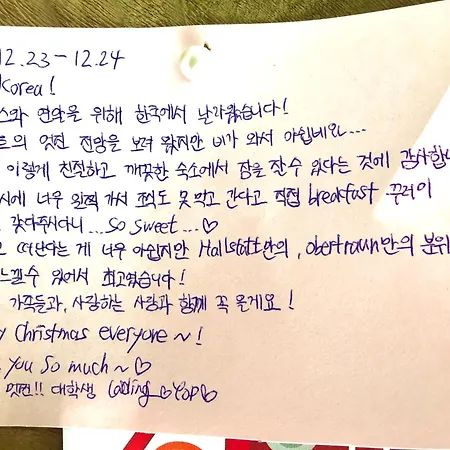 12.23 - 12.24
Korea!
스와 연말을 위해 한국에서 날라왔습니다!
트의 멋진 전망을 보려 왔지만 비가 와서 아쉽네요...
이렇게 친절하고 깨끗한 숙소에서 잠을 잘수 있다는 것에 감사합니
시에 너무 일찍 가서 조식도 못 먹고 간다고 직접 breakfast 꾸러미
갖다주시다니... So sweet...♡
떠난다는 게 너무 아쉽지만 Hallstatt만의, obertraun만의 분위
느낄수 있어서 최고였습니다!
가족들과, 사랑하는 사람과 함께 꼭 올게요!
y Christmas everyone ~!
you so much ~♡
멋진!! 대학생